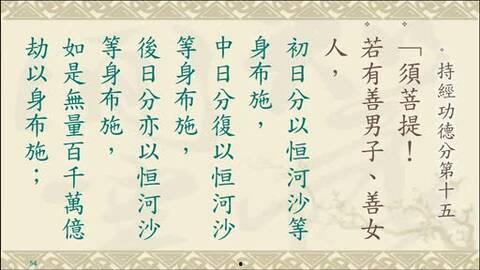 持經功德分第十五
「須菩提！
若有善男子、善女
人，
初日分以恒河沙等
身布施，
中日分復以恒河沙
等身布施，
後日分亦以恒河沙
等身布施，
如是無量百千萬億
劫以身布施；
54